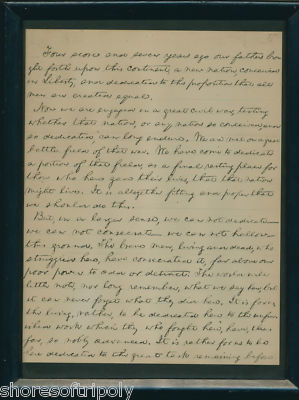 Four score and seven years ago our fathers brou
ght forth upon this continent, a new nation, conceived
in Liberty, and dedicated to the proposition that all
men are created equal.
Now we are engaged in a great civil war, testing
whether that nation, or any nation so conceived and
so dedicated, can long endure. We are met on a great
battle field of that war. We have come to dedicate
a portion of that field, as a final resting place for
those who here gave their lives, that that nation
might live. It is altogether fitting and proper that
we should do this.
But, in a larger sense, we can not dedicate
we can not consecrate we can not hallow
this ground. The brave men, living and dead, who
struggled here, have consecrated it, far above our
poor power to add or detract. The world will
little note, nor long remember, what we say here, but
it can never forget what they did here. It is for us
the living, rather, to be dedicated here to the unfin
ished work which they who fought here, have, thus
far, so nobly advanced. It is rather for us to be
here dedicated to the great task remaining before
shoresoftripoly